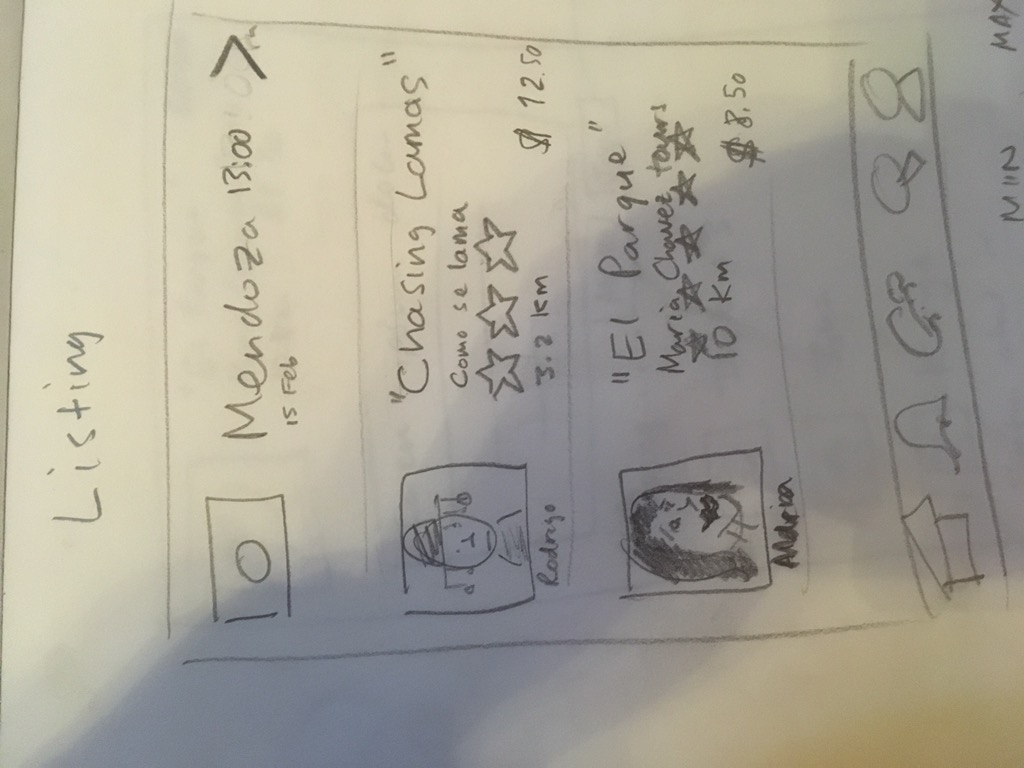 Listing
Mendoza 13:00
15 Feb
"Chasing Lamas"
Como se lama
3.2 km
$ 12.50
Rodrigo
"El Parque"
Maria Chavez tours
10 km
$ 8.50
MIN
MAX